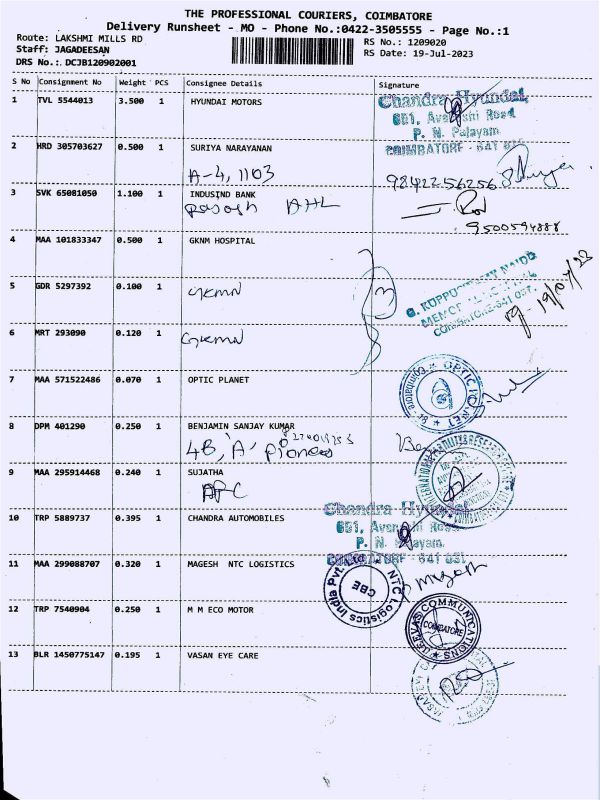 THE PROFESSIONAL COURIERS, COIMBATORE
Delivery Runsheet - MO - Phone No.:0422-3505555 - Page No.:1
Route: LAKSHMI MILLS RD
RS No.: 1209020
Staff: JAGADEESAN
RS Date: 19-Jul-2023
DRS No.: DCJB120902001
S No Consignment No Weight PCS Consignee Details Signature
1 TVL 5544013 3.500 1 HYUNDAI MOTORS
Chandra Hyundai,
651, Avanashi Road
P. N. Palayam
COIMBATORE - 641
2 HRD 305703627 0.500 1 SURIYA NARAYANAN
A-4, 1103
9842256256
3 SVK 65081050 1.100 1 INDUSIND BANK
9500594888
4 MAA 101833347 0.500 1 GKNM HOSPITAL
G. KUPPUSWAMY NAIDU
MEMORIAL HOSPITAL
COIMBATORE-641 037.
19/07/23
5 GDR 5297392 0.100 1 GKMN
6 MRT 293090 0.120 1 GKMN
7 MAA 571522486 0.070 1 OPTIC PLANET
OPTIC PLANET
8 DPM 401290 0.250 1 BENJAMIN SANJAY KUMAR
4B, 'A',
9 MAA 295914468 0.240 1 SUJATHA
10 TRP 5889737 0.395 1 CHANDRA AUTOMOBILES
Chandra Hyundai
651, Avanashi Road
P. N. Palayam.
COIMBATORE - 641 031
11 MAA 299088707 0.320 1 MAGESH NTC LOGISTICS
NTC Logistics India Pvt.
CBE
Magesh
12 TRP 7540904 0.250 1 M M ECO MOTOR
JEEVAS COMMUNICATIONS
COIMBATORE
13 BLR 1450775147 0.195 1 VASAN EYE CARE